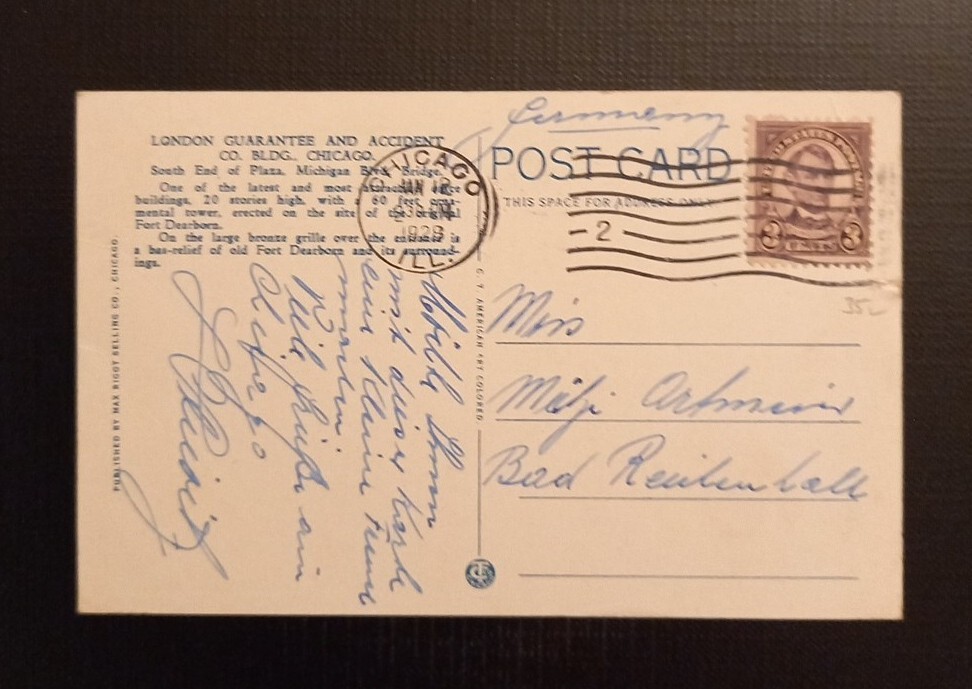 LONDON GUARANTEE AND ACCIDENT
CO. BLDG., CHICAGO.
South End of Plaza, Michigan Blvd. Bridge.
One of the latest and most attractive large
buildings, 20 stories high, with a 60 feet orna-
mental tower, erected on the site of the original
Fort Dearborn.
On the large bronze grille over the entrance is
a bas-relief of old Fort Dearborn and its surround-
ings.
PUBLISHED BY MAX RIGOT SELLING CO., CHICAGO.
Möchte Ihnen
mit dieser Karte
eine kleine Freude
machen.
Viele Grüße aus
Chicago
C. T. AMERICAN ART COLORED
Germany
POST CARD
THIS SPACE FOR ADDRESS ONLY
CHICAGO
1929
ILL.
2
2 CENTS 3
35
Miss
Mitzi
Bad Reichenhall